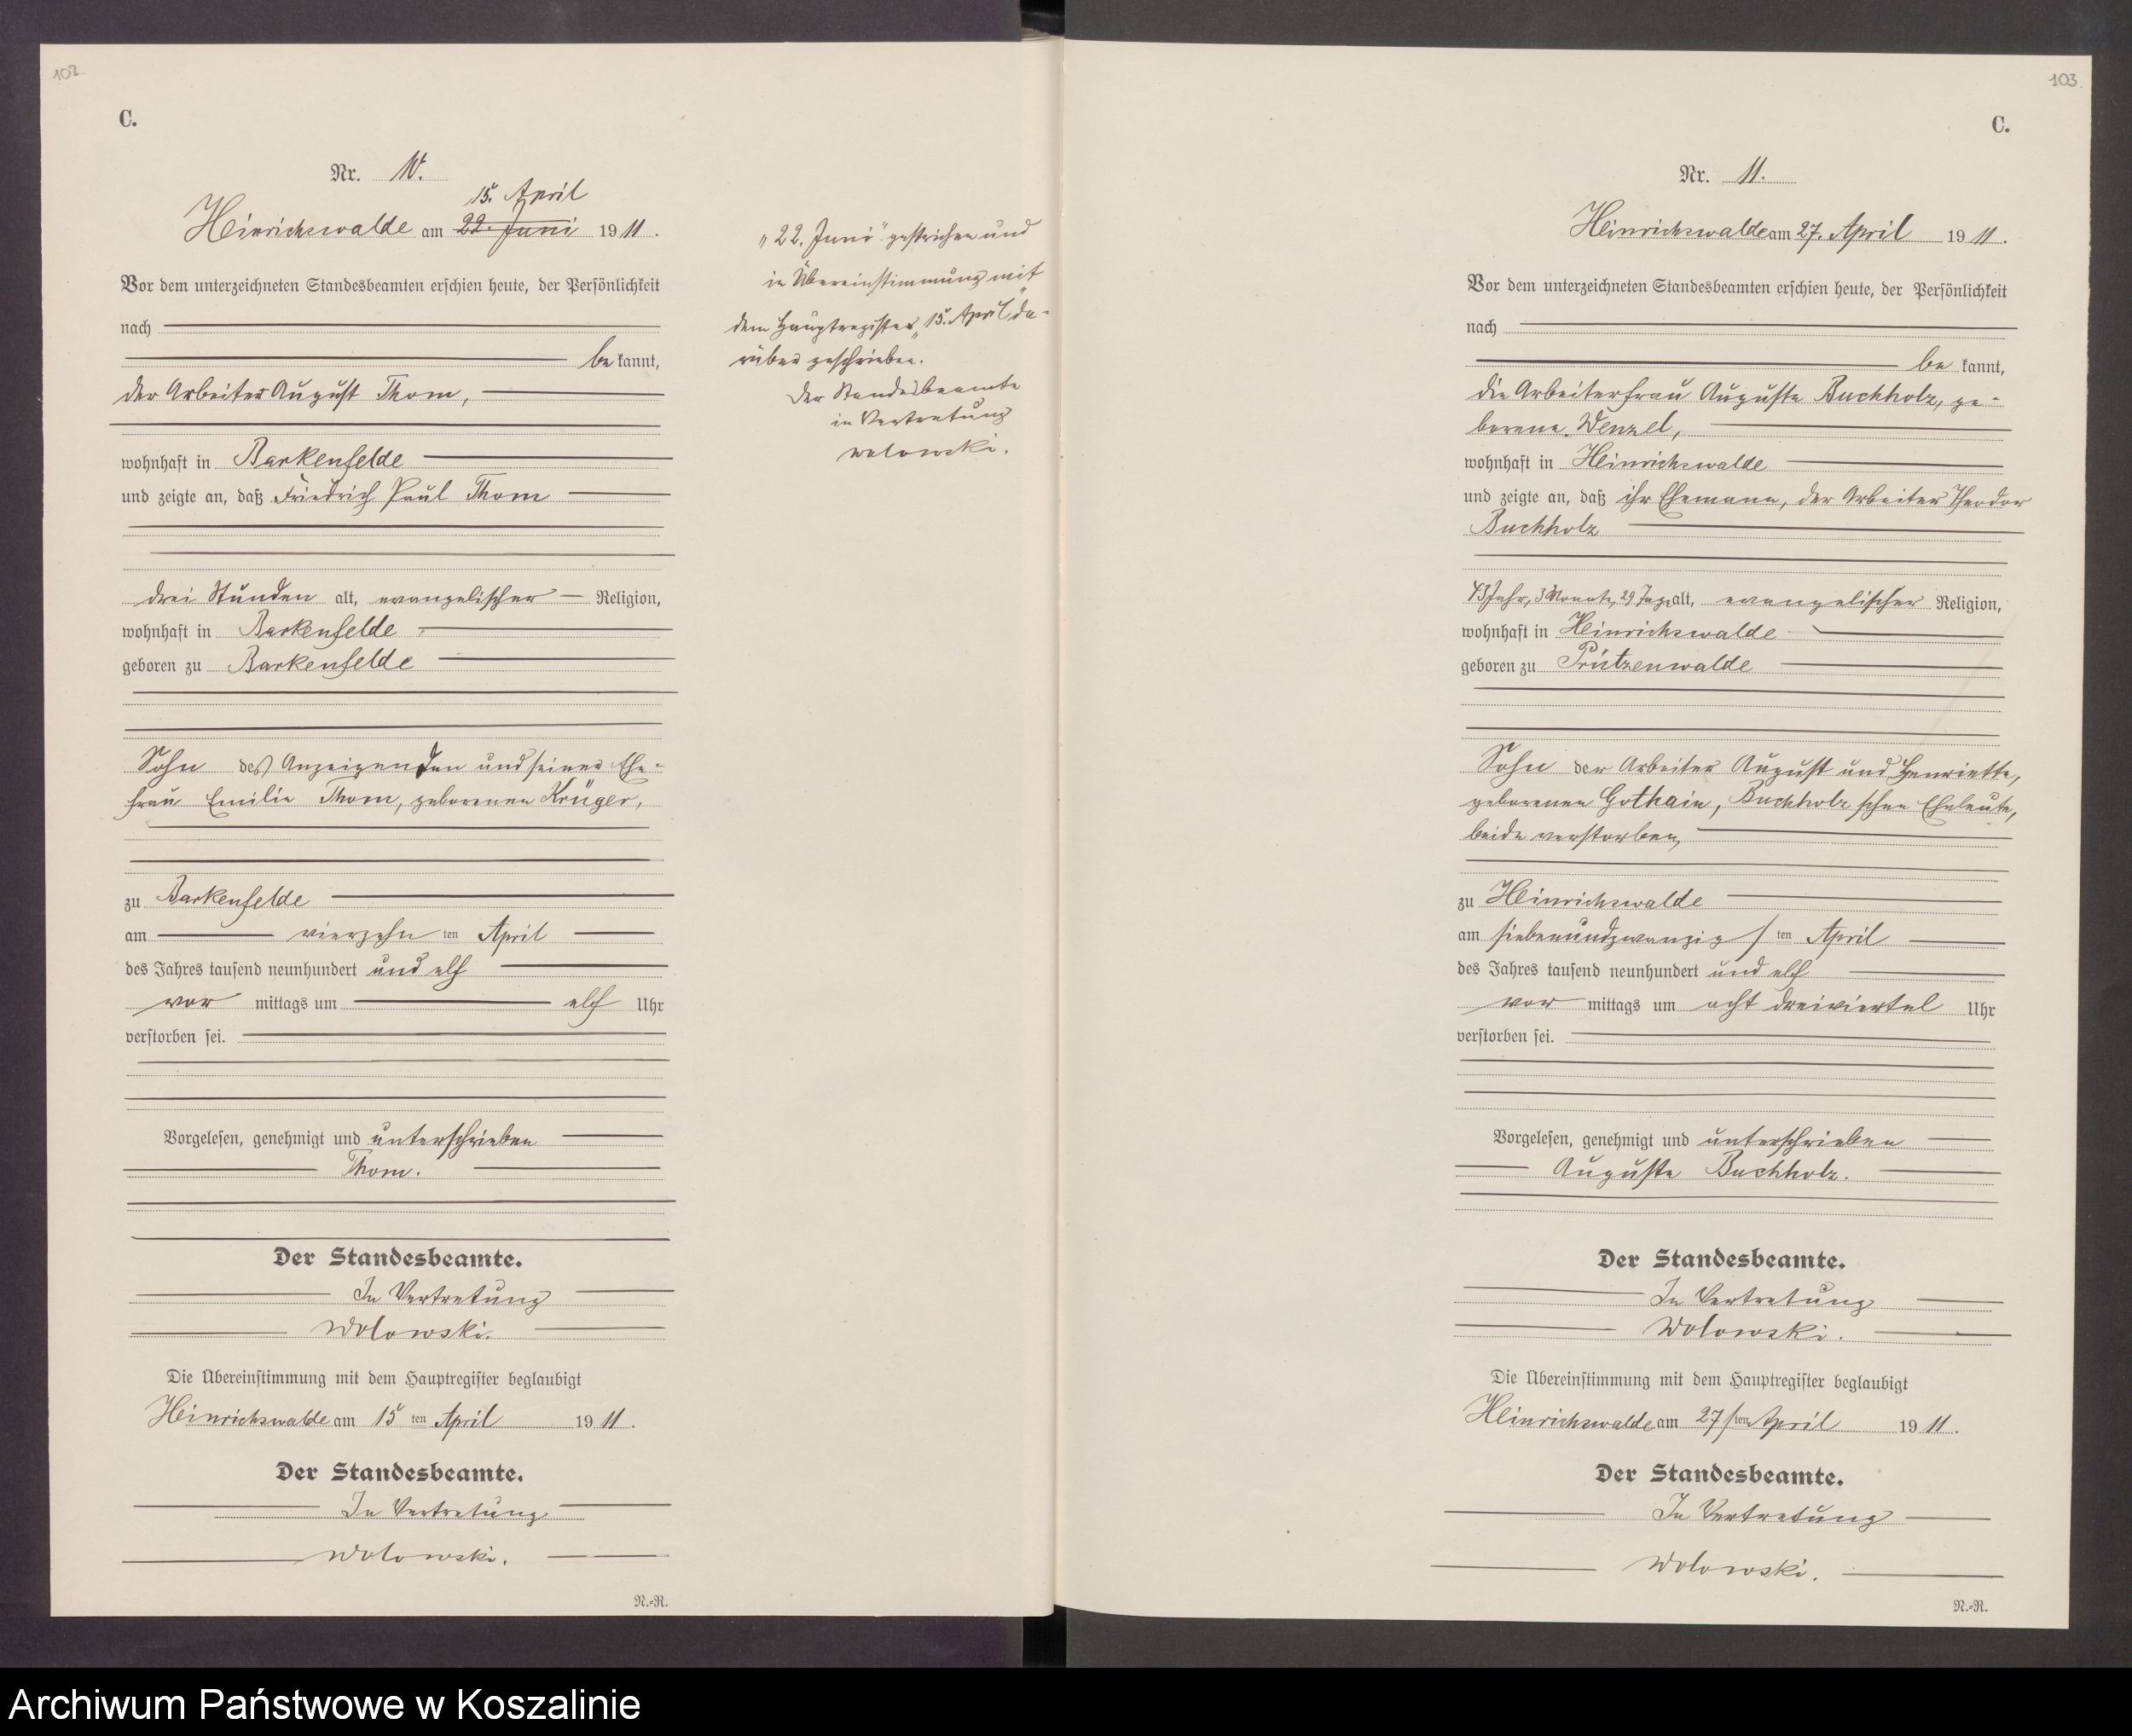 102.
C.
Nr. 10.
15. April
Heinrichswalde am 22. Juni 1911.
Vor dem unterzeichneten Standesbeamten erschien heute, der Persönlichkeit
nach
be kannt,
der Arbeiter August Thom,
wohnhaft in Barkenfelde
und zeigte an, daß Friedrich Paul Thom
drei Stunden alt, evangelischer Religion,
wohnhaft in Barkenfelde,
geboren zu Barkenfelde
Sohn des Anzeigenden und seiner Ehe-
frau Emilie Thom, geborenen Krüger,
zu Barkenfelde
am vierzehn ten April
des Jahres tausend neunhundert und elf
vor mittags um elf Uhr
verstorben sei.
Vorgelesen, genehmigt und unterschrieben
Thom.
Der Standesbeamte.
In Vertretung
Wolowski.
Die Übereinstimmung mit dem Hauptregister beglaubigt
Heinrichswalde am 15 ten April 1911.
Der Standesbeamte.
In Vertretung
Wolowski.
N.-R.
„22. Juni" gestrichen und
in Übereinstimmung mit
dem Hauptregister „15. April" da-
rüber geschrieben.
Der Standesbeamte
in Vertretung
Wolowski.
103.
C.
Nr. 11.
Heinrichswalde am 27. April 1911.
Vor dem unterzeichneten Standesbeamten erschien heute, der Persönlichkeit
nach
be kannt,
die Arbeiterfrau Auguste Buchholz, ge-
borene Wenzel,
wohnhaft in Heinrichswalde
und zeigte an, daß ihr Ehemann, der Arbeiter Theodor
Buchholz
43 Jahr, 3 Monate, 29 Tage alt, evangelischer Religion,
wohnhaft in Heinrichswalde
geboren zu Prützenwalde
Sohn der Arbeiter August und Henriette,
geborenen Gothain, Buchholz'schen Eheleute,
beide verstorben,
zu Heinrichswalde
am siebenundzwanzig / ten April
des Jahres tausend neunhundert und elf
vor mittags um acht dreiviertel Uhr
verstorben sei.
Vorgelesen, genehmigt und unterschrieben
Auguste Buchholz.
Der Standesbeamte.
In Vertretung
Wolowski.
Die Übereinstimmung mit dem Hauptregister beglaubigt
Heinrichswalde am 27 / ten April 1911.
Der Standesbeamte.
In Vertretung
Wolowski.
N.-R.
Archiwum Państwowe w Koszalinie